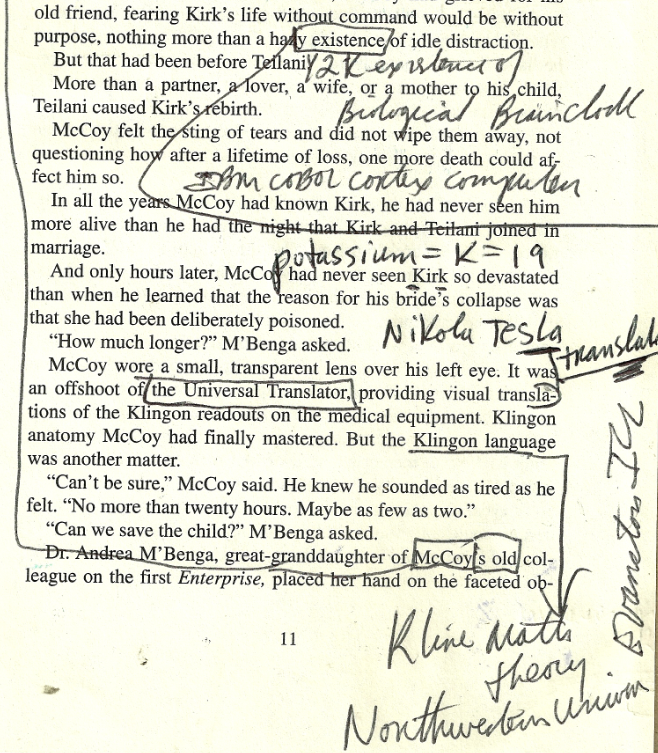 old friend, fearing Kirk’s life without command would be without
purpose, nothing more than a hazy existence of idle distraction.
But that had been before Teilani.
Y2K existence of
More than a partner, a lover, a wife, or a mother to his child,
Teilani caused Kirk’s rebirth.
Biological Brainclock
McCoy felt the sting of tears and did not wipe them away, not
questioning how after a lifetime of loss, one more death could af-
fect him so.
IBM COBOL cortex computer
In all the years McCoy had known Kirk, he had never seen him
more alive than he had the night that Kirk and Teilani joined in
marriage.
potassium = K = 19
And only hours later, McCoy had never seen Kirk so devastated
than when he learned that the reason for his bride’s collapse was
that she had been deliberately poisoned.
Nikola Tesla
“How much longer?” M’Benga asked.
McCoy wore a small, transparent lens over his left eye. It was
an offshoot of the Universal Translator, providing visual transla-
tions of the Klingon readouts on the medical equipment. Klingon
anatomy McCoy had finally mastered. But the Klingon language
was another matter.
“Can’t be sure,” McCoy said. He knew he sounded as tired as he
felt. “No more than twenty hours. Maybe as few as two.”
“Can we save the child?” M’Benga asked.
Dr. Andrea M’Benga, great-granddaughter of McCoy’s old col-
league on the first Enterprise, placed her hand on the faceted ob-
11
Kline Math
theory
Northwestern Univer
Evanston IL